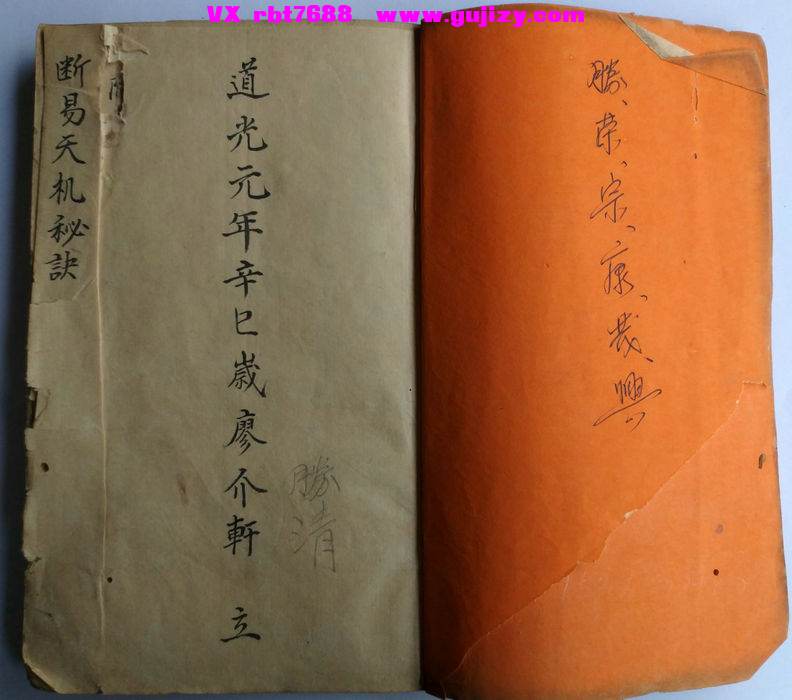 VX rbt7688 www.gujizy.com
勝、荣、宗、康、茂、興
勝清
道光元年辛巳歲廖介軒 立
断易天机秘訣